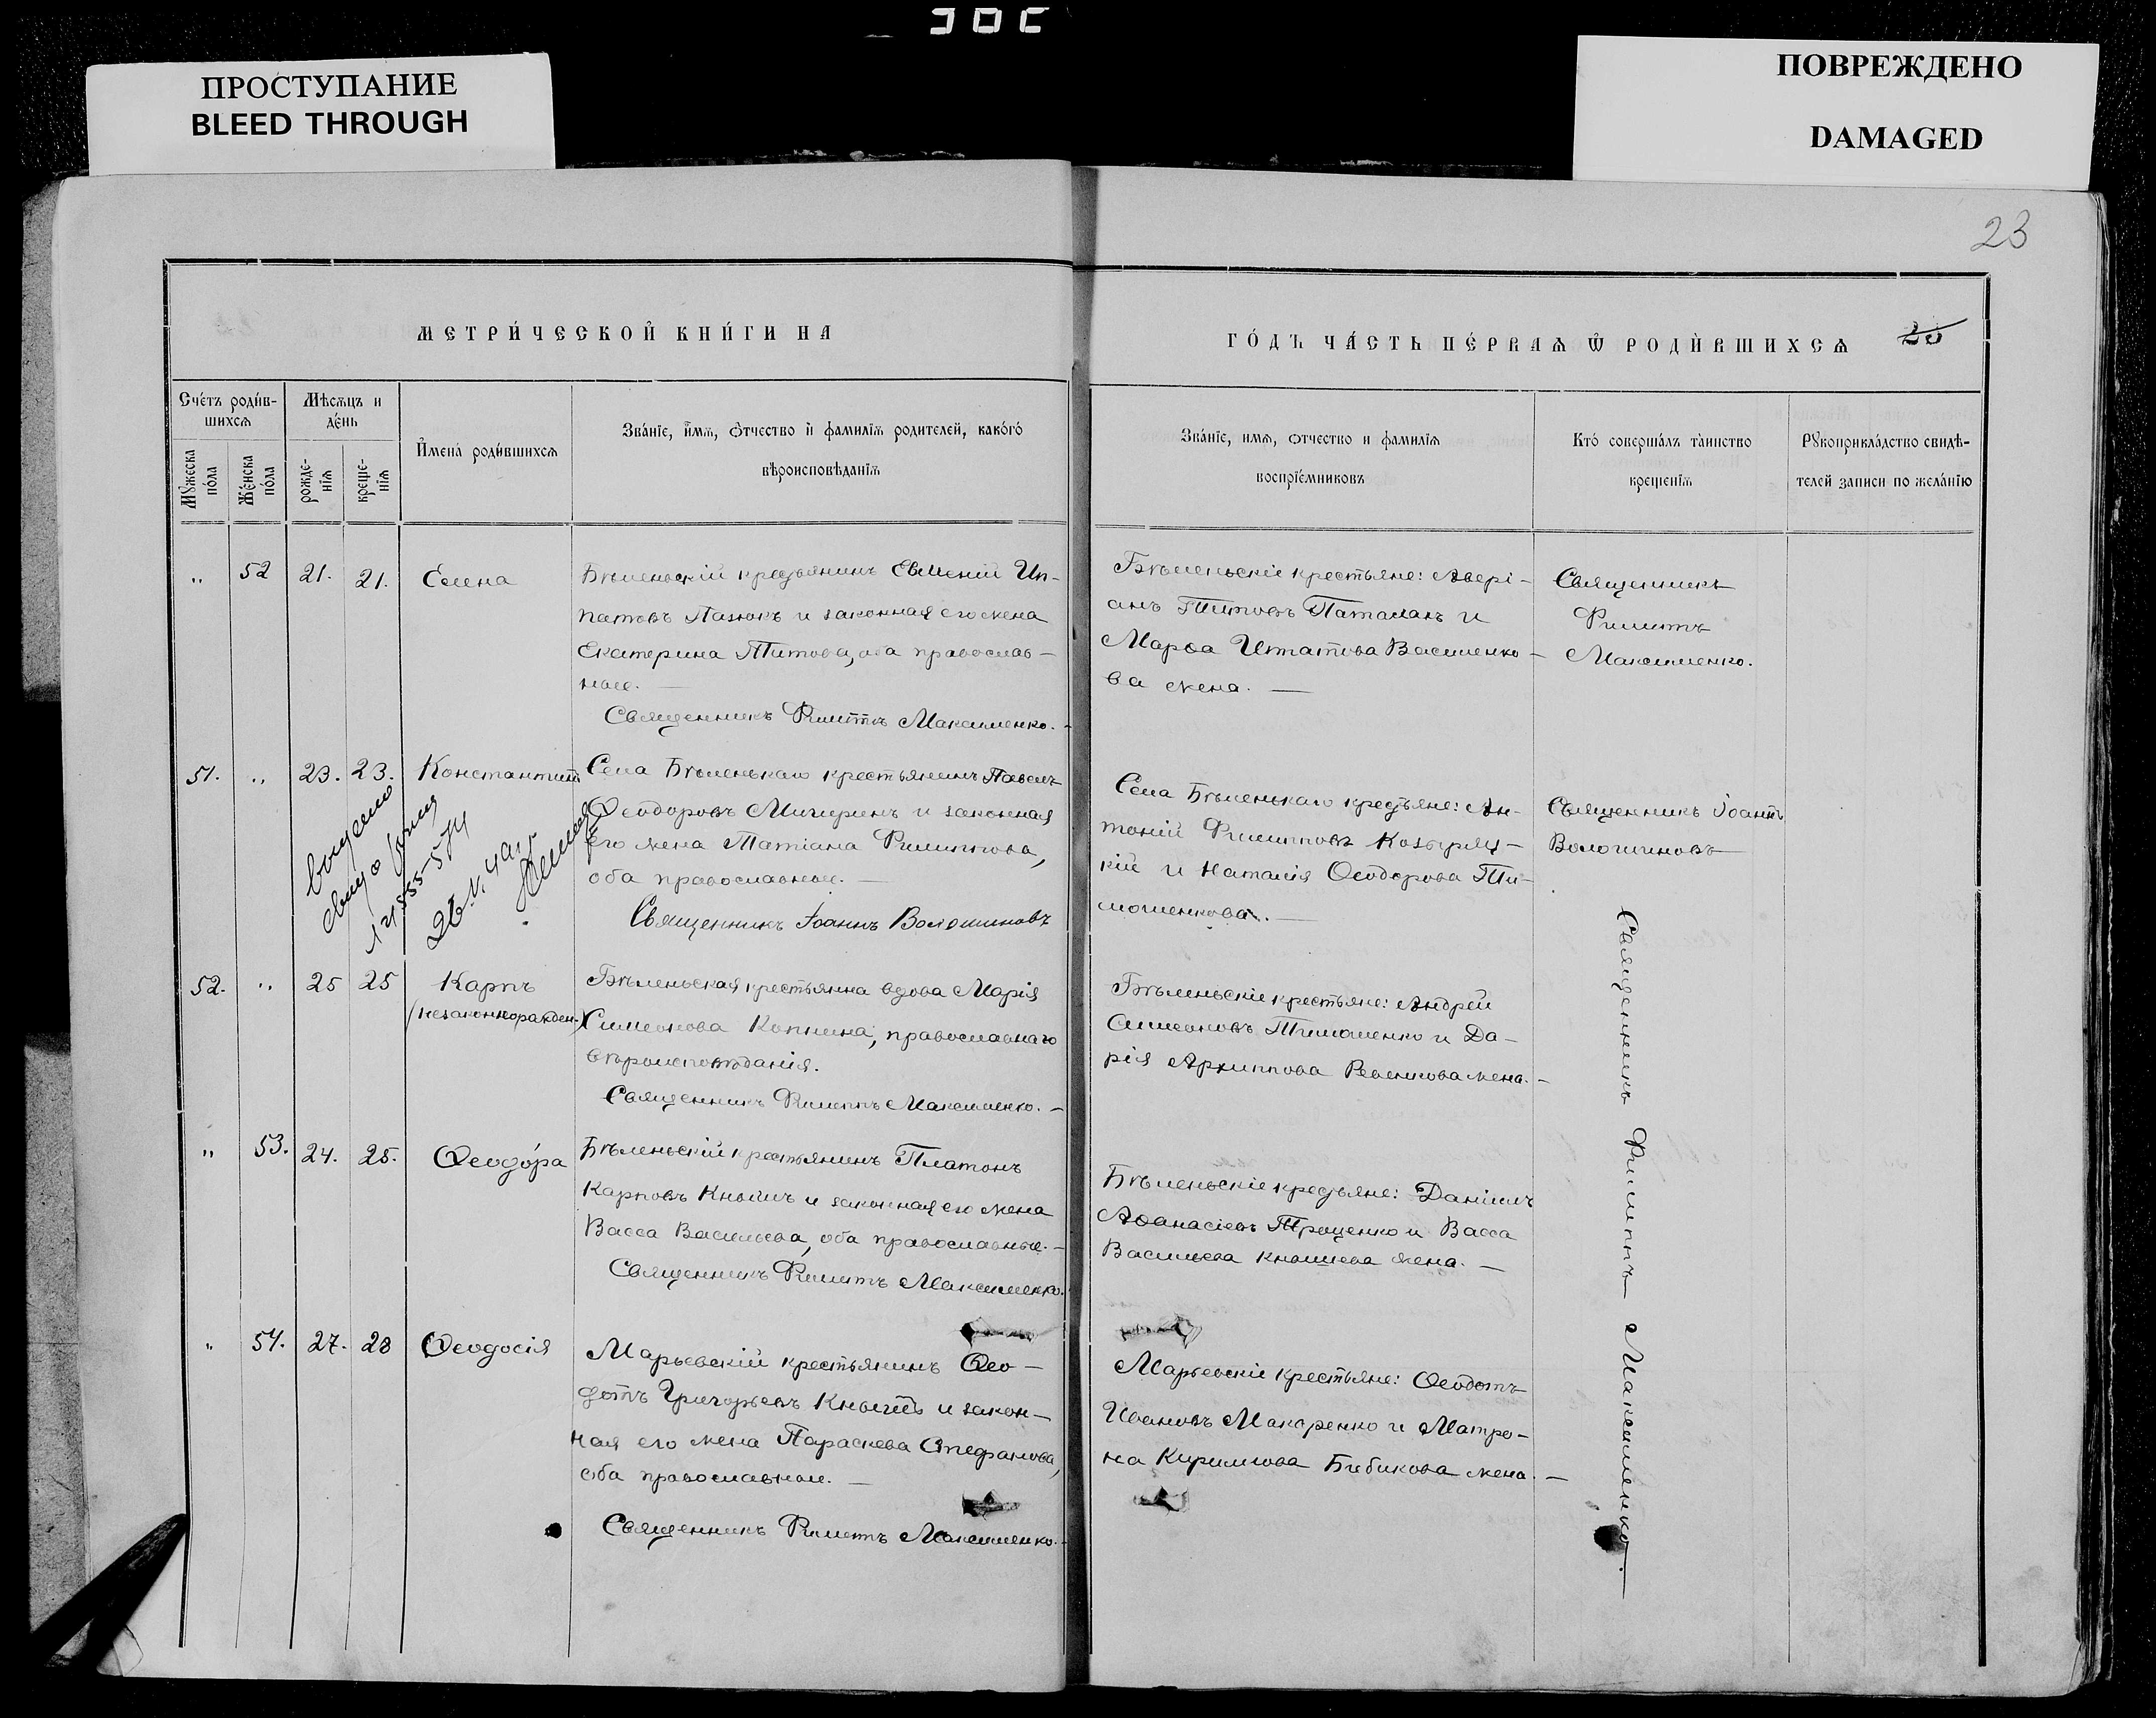 ПРОСТУПАНИЕ
BLEED THROUGH
ПОВРЕЖДЕНО
DAMAGED
23
МЕТРИ́ЧЕСКОЙ КНИ́ГИ НА
ГО́ДЪ ЧА́СТЬ ПЕ́РВАѦ Ѿ РОДИ́ВШИХСѦ
Сче́тъ роди́в-
шихсѧ
Мѣ́сѧцъ и
де́нь
Мꙋ́жеска
по́ла
Же́нска
по́ла
рожде-
нїѧ
креще-
нїѧ
И҆мена̀ роди́вшихсѧ
Зва́нїе, и҆́мѧ, ѻ҆́тчество и҆ фамилїѧ родителей, како́гѡ
вѣроисповѣ́данїѧ
Зва́нїе, имѧ, ѻтчество и фамилїѧ
воспрїе́мниковъ
Кто̀ соверша́лъ та́инство
креще́нїѧ
Рꙋкоприкла́дство свидѣ́-
телей записи по жела́нїю
„ 52 21. 21. Елена
Бѣленьскій крестьянинъ Евменій Ип-
патовъ Пазюкъ и законная его жена
Екатерина Титова, оба православ-
ные. —
Священникъ Филиппъ Максименко. -
Бѣленьскіе крестьяне: Авері-
анъ Титовъ Паталахъ и
Марѳа Ипатова Василенко-
ва жена. —
Священникъ
Филиппъ
Максименко.
51. „ 23. 23. Константинъ
Села Бѣленькаго крестьянинъ Павелъ
Ѳеодоровъ Мичиринъ и законная
его жена Татіана Филиппова,
оба православные. —
Священникъ Іоаннъ Волошиновъ
Села Бѣленькаго крестьяне: Ан-
тоній Филипповъ Козыряц-
кій и Наталія Ѳеодорова Ти-
мошенкова. —
Священникъ Іоаннъ
Волошиновъ
52. „ 25 25 Карпъ
(незаконнорожден.)
Бѣленьская крестьянка вдова Марія
Симеонова Копнина, православнаго
вѣроисповѣданія.
Священникъ Филиппъ Максименко. —
Бѣленьскіе крестьяне: Андрей
Симеоновъ Тимошенко и Да-
рія Архиппова жена. -
„ 53. 24. 25. Ѳеодо́ра
Бѣленьскій крестьянинъ Платонъ
Карповъ Кнышъ и законная его жена
Васса Васильева, оба православные. -
Священникъ Филиппъ Максименко.
Бѣленьскіе крестьяне: Даніилъ
Аѳанасіевъ Троценко и Васса
Васильева Кнышева жена. —
„ 54. 27. 28 Ѳеодосія
Марьевскій крестьянинъ Ѳео-
дотъ Григорьевъ Кнышъ и закон-
ная его жена Параскева Стефанова,
оба православные. —
Священникъ Филиппъ Максименко. -
Марьевскіе крестьяне: Ѳеодотъ
Ивановъ Макаренко и Матро-
на Кириллова Бибикова жена. —
Священникъ Филиппъ Максименко. —